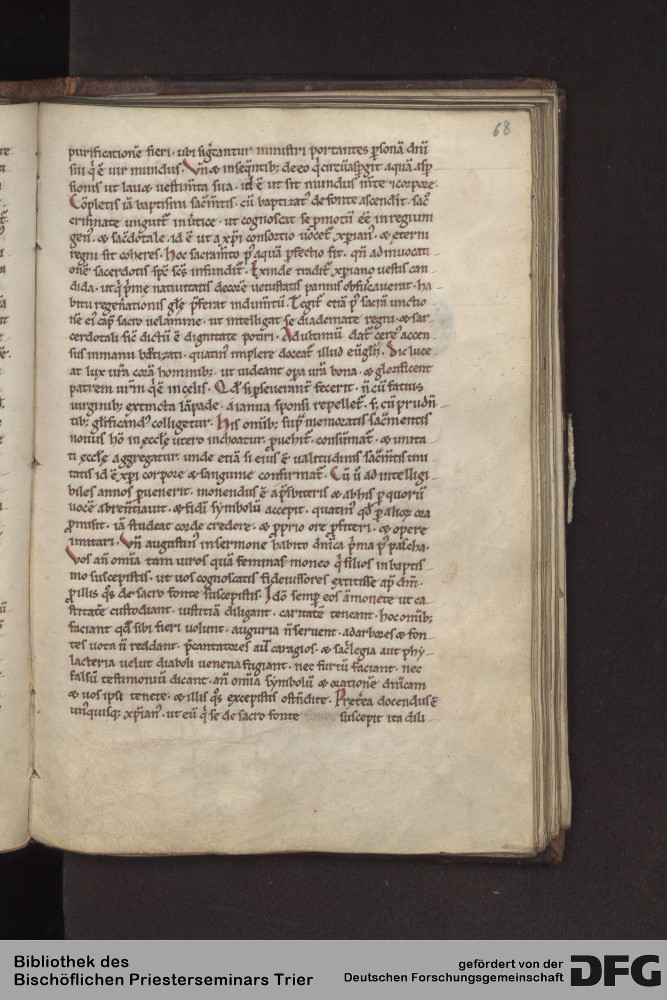 68
purificationē fieri · ubi sig̅tantur ministri portantes p̲sonā dn̄i
sui q̄ ē uir mundus · Vn̄ & inseq̄ntib; de eo q̄ circūasp̲git aquā asp̲
sionis ut lauæ uestim̄ta sua · id ē ut sit mundus m̄te ⁊ corpore ·
Cōpletis iā baptismi sac̄m̄tis · cū baptizat᷒ de fonte ascendit · sac̄o
crismate ungūt᷒ in u̇tice · ut cognoscat se p̲motū ēē in regium
gen᷒ · & sac̄dotale · id ē ut a xp̄i consortio uōcet᷒ xp̄ian᷒ · & et̄erni
regni sit coheres · Hoc sacram̄to p̲ aquā p̲fectio fit · qn̄ ad inuocati
onē sacerdotis sp̄c sc̄s infundit᷒ · Exinde tradit᷒ xp̄iano uestis can
dida · ut q̇ p̲mę natiuitatis decorē uetustatis pannus obfuscauerat · ha
bitu regen̄ationis glę p̲ferat indum̄tū · Tegit᷒ etiā p᷒ sacrā unctio
nē ei᷒ cap᷒ sacro uelamine · ut intelligat se diademate regni · & sac̄
cerdotali sic̄ dictū ē dignitate potiri · Adultimū dat᷒ cere᷒ accen
sus in manu bab̄tizati · quatin᷒ implere doceat᷒ illud eūglii · Sic luce
at lux ur̄a corā hominib; · ut uideant op̲a ur̄a bona · & glorificent
patrem ur̄m q̄ ē in celis · Qd̄ si p̲seuerant᷒ fecerit · n̄ cū fatuis
uirginib; extincta lāpade · a ianua sponsi repellet᷒ · s; cū prudn̄
tib; glificand᷒ colligetur · His om̄ib; sup̲ memoratis sac̄mentis
nouus hō in ęcclę utero inchoatur · puehit᷒ · consūmat᷒ · & unita
ti ęcclę aggregatur · unde etiā si ei᷒ ē ualitudinis sac̄m̄tis uni
tatis id ē xp̄i corpore & sanguine confirmat᷒ · Cū ū ad intelligi
biles annos p̲uenerit · monendus ē a p̲sb̄iteris & ab his p̲ quorū
uocē abren̄tiauit · & fidī symbolū accepit · quatin᷒ qd̄ p̲ alioꝝ ora
p̲misit · iā studeat corde credere · & p̲prio ore p̲fiteri · & opere
imitari · Vn̄ augustin᷒ in sermone habito dn̄ica p̲ma p᷒ pascha ·
Vos an̄ om̄ia tam uiros quā feminas moneo q̇ filios in baptis
mo suscepistis · ut uos cognoscatis fideiussores extitisse ap᷒ dm̄ ·
p̲ illis qͦs de sacro fonte suscepistis · Idō semp̲ eos ammonete ut ca
stitatē custodiant · iustitiā diligant · caritatē teneant · hoc om̄ib;
faciant qd̄ sibi fieri uolunt · auguria n̄ seruent · ad arbores & fon
tes uota n̄ reddant · p̲cantatores aut̄ caragios · & sac̄legia aut phy
lacteria uelut diaboli uenena fugiant · nec furtū faciant · nec
falsū testimoniū dicant · an̄ om̄ia symbolū & orationē dn̄icam
& uos ipsi tenete · & illis qͦs excepistis ostn̄dite · Pretēa docendus ē
unusquisq; xp̄ian᷒ · ut eū q̇ se de sacro fonte suscepit ita dili
Bibliothek des
Bischöflichen Priesterseminars Trier
gefördert von der
Deutschen Forschungsgemeinschaft
DFG